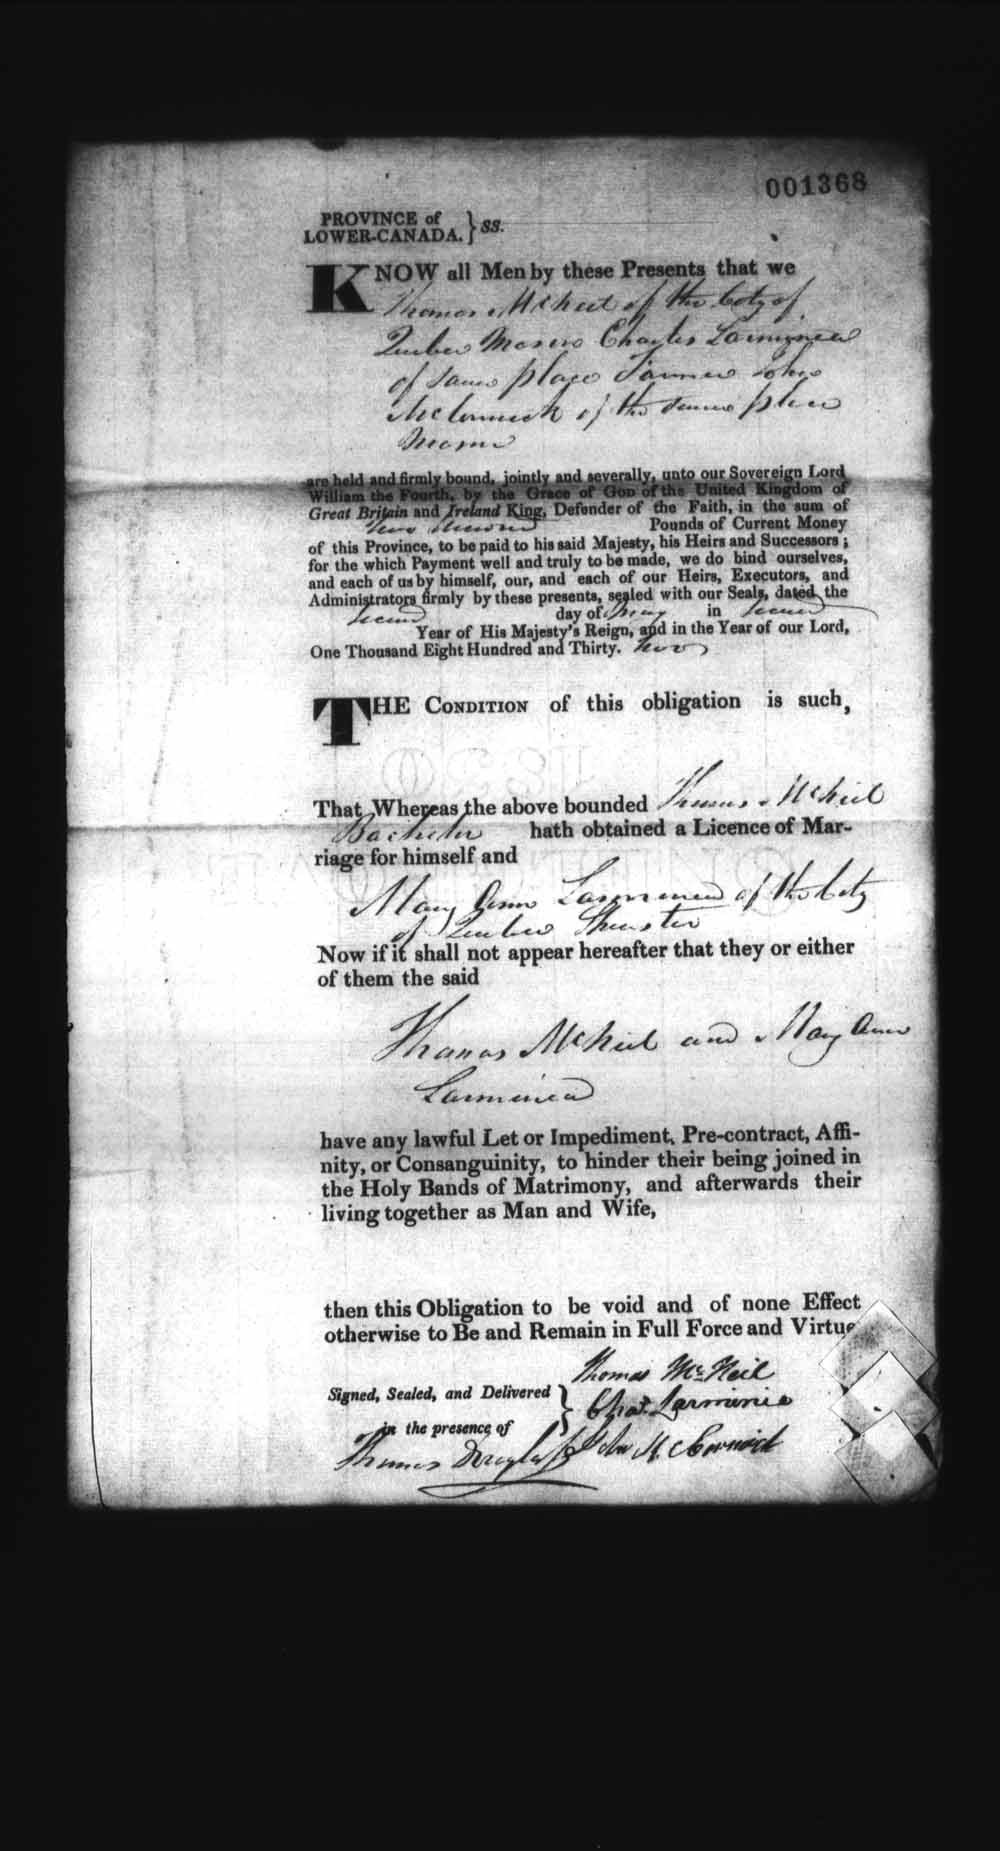 001368
PROVINCE of
LOWER-CANADA. } ss.
KNOW all Men by these Presents that we
Thomas McNeil of the City of
Quebec Mason Charles Larminea
of same place Farmer John
McCormick of the same place
Mason
are held and firmly bound, jointly and severally, unto our Sovereign Lord
William the Fourth, by the Grace of GOD of the United Kingdom of
Great Britain and Ireland King, Defender of the Faith, in the sum of
two hundred Pounds of Current Money
of this Province, to be paid to his said Majesty, his Heirs and Successors ;
for the which Payment well and truly to be made, we do bind ourselves,
and each of us by himself, our, and each of our Heirs, Executors, and
Administrators firmly by these presents, sealed with our Seals, dated the
second day of May in second
Year of His Majesty's Reign, and in the Year of our Lord,
One Thousand Eight Hundred and Thirty. two
THE CONDITION of this obligation is such,
1830
That Whereas the above bounded Thomas McNeil
Bachelor hath obtained a Licence of Mar-
riage for himself and
Mary Ann Larminea of the City
of Quebec Spinster
Now if it shall not appear hereafter that they or either
of them the said
Thomas McNeil and Mary Ann
Larminea
have any lawful Let or Impediment, Pre-contract, Affi-
nity, or Consanguinity, to hinder their being joined in
the Holy Bands of Matrimony, and afterwards their
living together as Man and Wife,
then this Obligation to be void and of none Effect
otherwise to Be and Remain in Full Force and Virtue
Thomas McNeil
Signed, Sealed, and Delivered } Chas. Larminie
in the presence of
Thomas Douglass John McCormick